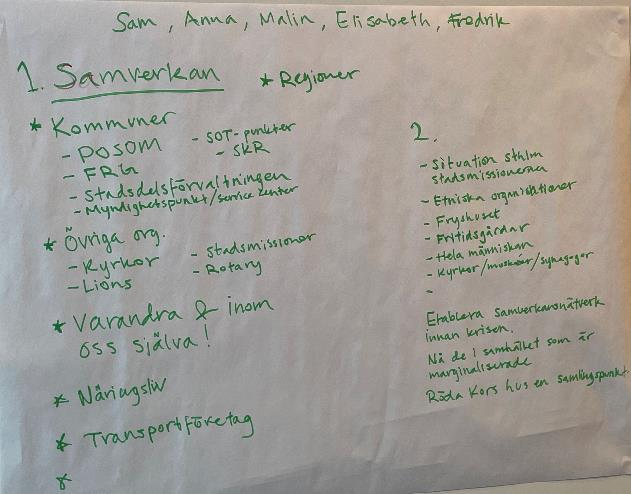 Sam, Anna, Malin, Elisabeth, Fredrik
1. Samverkan * Regioner
* Kommuner
- POSOM - SOT-punkter
- FRG - SKR
- Stadsdelsförvaltningen
- Myndighetspunkt/service center
* Övriga org.
- Kyrkor - Stadsmissioner
- Lions - Rotary
* Varandra & inom
oss själva!
* Näringsliv
* Transportföretag
*
2.
- Situation sthlm
stadsmissionerna
- Etniska organisationer
- Fryshuset
- Fritidsgårdar
- Hela människan
- Kyrkor/moskéer/synagogor
-
Etablera samverkansnätverk
innan krisen.
Nå de i samhället som är
marginaliserade
Röda Kors hus en samlingspunkt